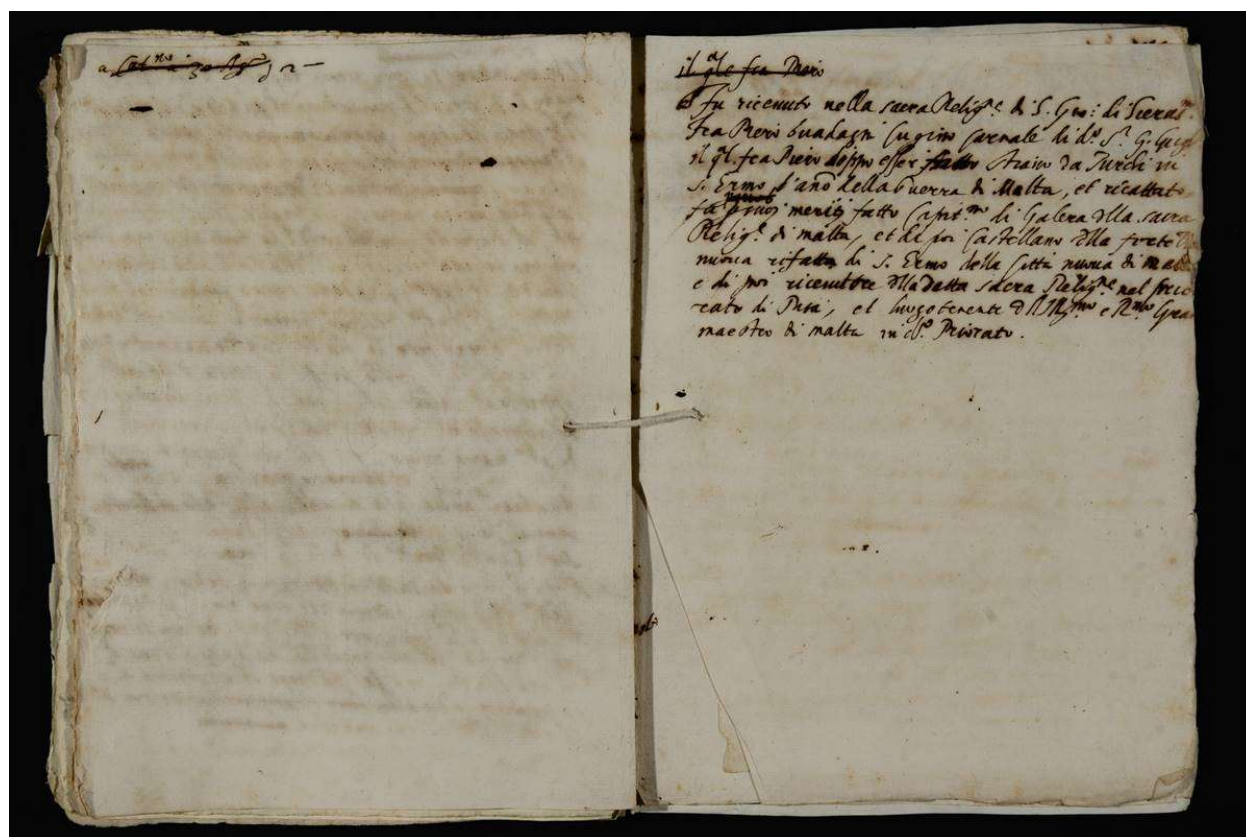 a
il q.le fra Piero
fu riceuuto nella sacra Relig.e di S. Gio: di Gierus.m
fra Piero Guadagni Cugino Carnale di d.o S.r G.
il q.l fra Piero doppo esser fatto stiauo da Turchi in
S. Ermo l'ano della Guerra di Malta, et ricattato
fu p suoi meriti fatto Capit.no di Galera dlla sacra
Relig.e di malta, et di poi Castellano dlla forte
nuoua rifatta di S. Ermo della Città nuoua di
e di poi riceuitore dlla detta sacra Relig.ne nel prio
rato di Pisa, et luogotenente dll Ill.mo e R.mo Gra
maestro di malta in d.o Priorato.